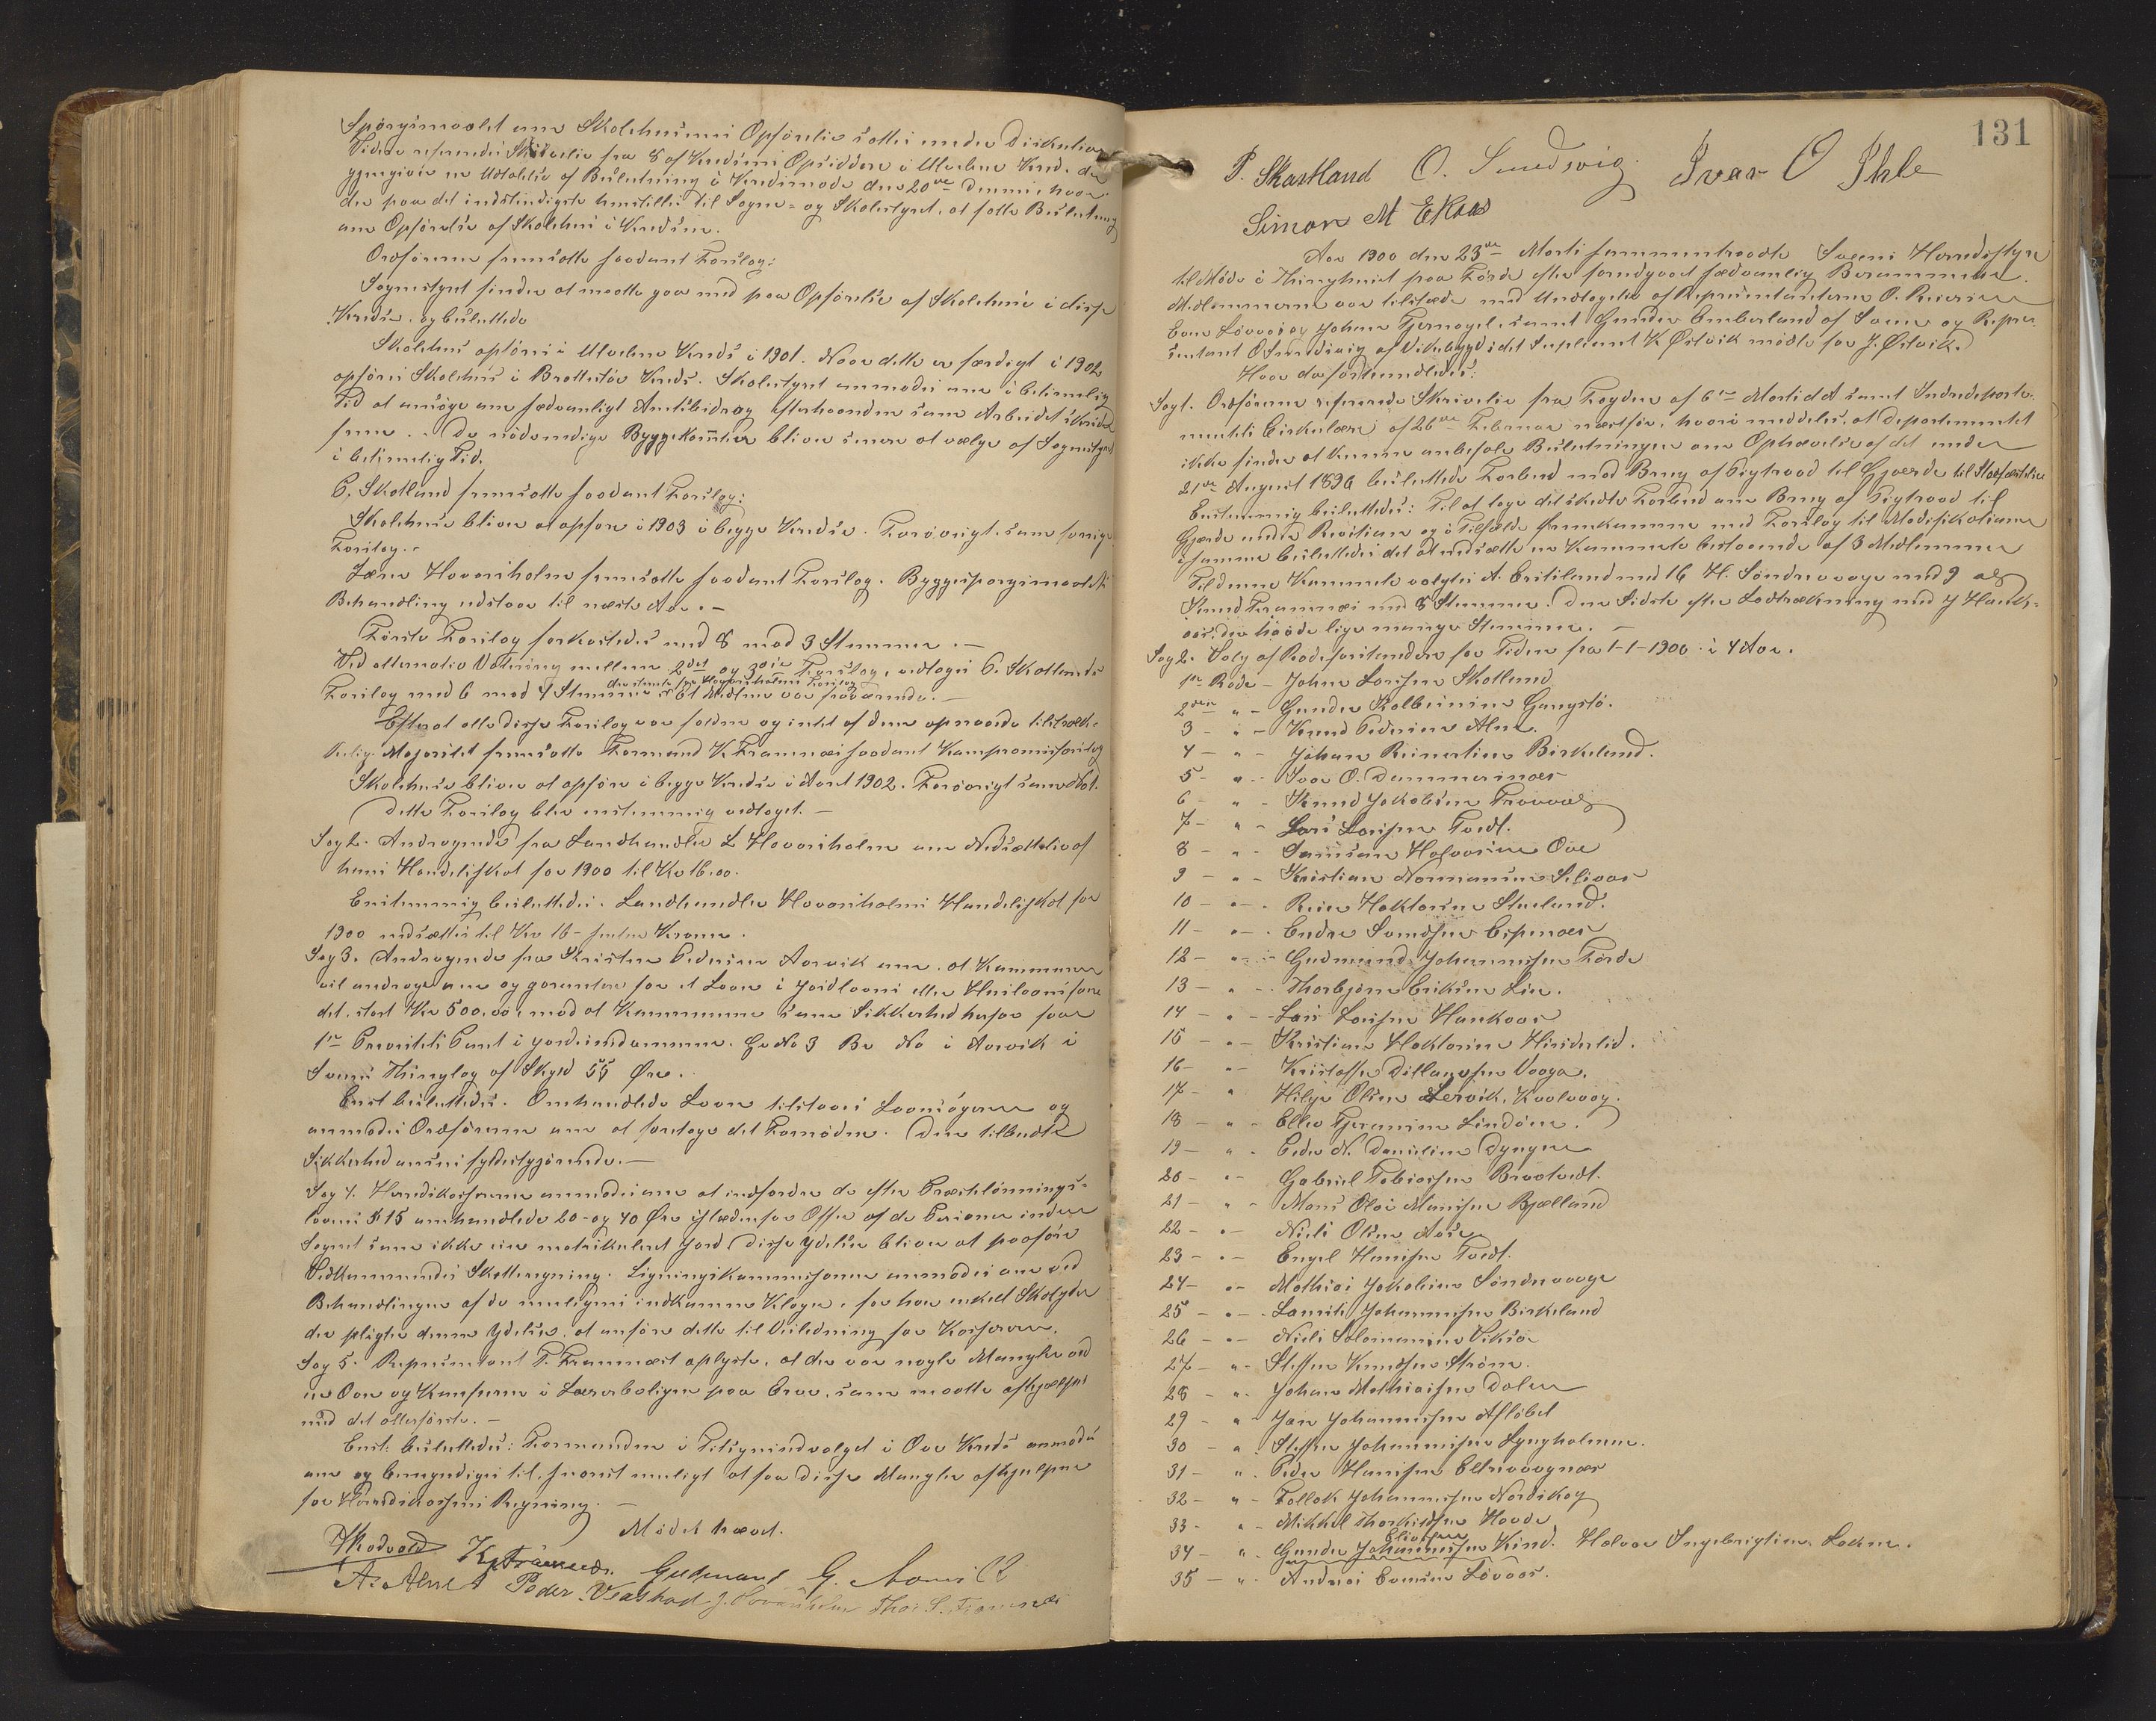 Spørgsmaalet om Skolehusenes Opførelse sattes under Diskution
Videre refereredes Skrivelse fra 8 af Kredsens Opsiddere i Utvelene Kreds, der
gjengiver en Udtalelse af Beslutning i Kredsmøde den 20de Dennes hvor
der paa det indstændigste henstilles til Sogne- og Skolestyret, at fatte Beslutning
om Opførelse af Skolehus i Kredsen.
Ordføreren fremsatte saadant Forslag:
Sognestyret finder at maatte gaa med paa Opførelse af Skolehuse i disse
Kredse og besluttede
Skolehus opføres i Kreds i 1901. Naar dette er færdigt i 1902
opføres Skolehus i Brattestøe Kreds. Skolestyret anmodes om i betimelig
Tid at ansøge om sædvanligt Amtsbidrag efterhaanden som Arbeidet skrider
frem. De nødvendige Byggekomiteer bliver senere at vælge af Sognestyret
i betimelig Tid.
P. Skatland fremsatte saadant Forslag:
Skolehuse bliver at opføre i 1903 i begge Kredse. Forøvrigt som forrige
Forslag.-
Hovarsholm fremsatte saadant Forslag. Byggespørgsmaalets
Behandling udstaar til næste Aar.-
Første Forslag forkastedes med 8 mod 3 Stemmer.-
Ved alternativ Votering mellem 2det og 3die Forslag, vedtoges P. Skatlands
der stemte for Hovarsholms Forslag
Forslag med 6 mod 4 Stemmer. Et Medlem var fraværende.-
Efterat alle disse Forslag var faldne og intet af dem opnaaede tilstræk-
kelig Majoritet fremsatte Formand K. Framnæs saadant Kompromisforslag
Skolehuse bliver at opføre i begge Kredse i Aaret 1902. Forøvrigt som
Dette Forslag blev enstemmig vedtaget.-
Sag 2. Andragende fra Landhandler L. Hovarsholm om Nedsættelse af
hans Handelsskat for 1900 til Kr 16.00.
Enstemmig besluttedes: Landhandler Hovarsholms Handelsskat for
1900 nedsættes til Kr 16- sexten Kroner.
Sag 3. Andragende fra Kristen Pedersen Aarvik om, at Kommunen
vil andrage om og garantere for et Laan i Jordlaans eller Huslaansfon
det, stort Kr 500,00, mod at Kommunen som Sikkerhed herfor faar
1ste Prioritets Pant i Gaardeiendommen. G. No 3 Br No i Aarvik i
Sveens Thinglag af Skyld 55 Øre.
Enst. besluttedes. Omhandlede Laan tilstaaes Laansøgeren og
anmodes Ordføreren om at foretage det Fornødne. Den tilbudte
Sikkerhed ansees fyldestgjørende.-
Sag 4. Herredskassereren anmodes om at indfordre de efter Præstelønnings-
lovens § 15 omhandlede 20- og 40 Øre istedenfor Offer af de Personer inden
Sognet som ikke eier matrikuleret Jord. Disse Ydelser bliver at paaføre
Vedkommendes Skatteregning. Ligningskommissionen anmodes om ved
Behandlingen af de indkomne Klager, for hver enkelt Skatyder
der pligter denne Ydelse, at anføre dette til Veiledning for Kassereren.
Sag 5. Repræsentant T. Framnæs oplyste, at der var nogle Mangler ved
en Ovn og Komfuren i Lærerboligen paa Aae, som maatte afhjælpes
med det allerførste.-
Enst. besluttedes: Formanden i Tilsynsudvalget i Aae Kreds anmodes
om og bemyndiges til, snarest muligt at faa disse Mangler afhjulpne
for Herredskassens Regning.-
Mødet hævet.
HRodvold K. Framnæs. Gudmund G.
A. Alne Peder Veastad J. Hovarsholm Thor S. Framnæs
131
P. Skartland O. Smedsvig Ivar O Ihle
Simon M Ekaas
Aar 1900 den 23de Marts sammentraadte Sveens Herredsstyre
til Møde i Thinghuset paa Førde efter forudgaaet sædvanlig Berammelse.
Medlemmerne var tilstede med Undtagelse af Repræsentanterne O. Reiersen
Løvaas og Johan Tjernagel, samt Gunder Emberland af Sveen og Repræ-
sentant O. Smedsvig af Vikebygd i det Suppleant K. Ørevik mødte for J. Ørevik.
Hvor da forhandledes:
Sag 1. Ordføreren refererede Skrivelse fra Fogden af 6te Marts d.A. samt Indredeparte-
mentets Cirkulære af 26de Februar næstfør, hvori meddeles, at Departementet
ikke finder at kunne anbefale Beslutningen om Ophævelse af det under
21de August 1896 besluttede Forbud mod Brug af Pigtraad til Gjærde til Stadfæstelse
Enstemmig besluttedes: Til at tage det skedte Forbud om Brug af Pigtraad til
Gjærde under Revition og i Tilfælde fremkomme med Forslag til Modifikationer
i samme besluttedes det at nedsætte en Kommite bestaaende af 3 Medlemmer
Til denne Kommite valgtes A. Erikland med 16 H. Søndrevaage med 9 og
Knud Framnæs med 8 Stemmer. Den Sidste efter Lodtrækning med J. Hauk-
aas, der havde lige mange Stemmer.-
Sag 2. Valg af Rodeforstandere for Tiden fra 1-1-1900 i 4 Aar.
1ste Rode - Johan Larssen Skatland
2den " - Gunder Kolbensen Gangstø.
3 - " - Knud Pedersen Alne.
4 - " - Johan Reinertsen Birkeland.
5 - " - Ivar O. Dammersnæs
6 - " - Knud Jakobsen Travaag
7 - " - Lars Larssen Tvedt.
8 - " - Samson Halvorsen Aae
9 - " - Kristian Normansen
10 - " - Reier Haktorsen Stueland.
11 - " - Endre Svendsen Espenæs
12 - " - Gudmund Johannessen Førde
13 - " - Thorbjørn Eriksen Lie.
14 - " - Lars Larssen Haukaas
15 - " - Kristian Haktorsen Hinderlid.
16 - " - Kristoffer Vaaga.
17 - " Helge Olsen Lervik, Kvalvaag.
18 - " - Elles Tjeransen Lindøen.
19 - " - Peder N. Danielsen Dyngen
20 - " - Gabriel Tobiassen Bratvedt.
21 - " - Mons Olai Monssen Bjelland
22 - " - Niels Olsen Aase
23 - " - Engel Hanssen Tvedt.
24 - " - Mathias Jakobsen Søndrevaage
25 - " - Laurits Johannessen Birkeland
26 - " - Niels Salomonsen Viksø
27 - " - Steffen Knudsen Strøm.
28 - " - Johan Mathiassen Dalen
29 - " - Jan Johannessen Afløbet
30 - " - Steffen Johannessen Lyngholmen.
31 - " - Peder Hanssen Eltravaagnæs
32 - " - Tollak Johannessen Nordskog
33 - " - Mikkel Thorkildsen Hovde
Eliassen
34 - " - Gunder Johannessen Kind. Halvor Ingebrigtsen Løkene.
35 - " - Andreas Evensen Løvaas.